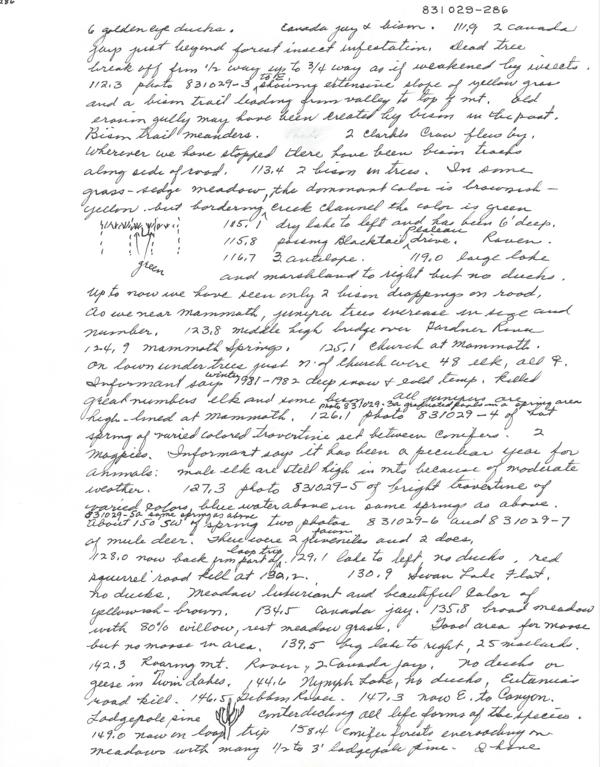 831029-286
6 golden eye ducks. Canada jay & bison. 111.9 2 Canada
jays just beyond forest insect infestation. Dead tree
break off from 1/2 way up to 3/4 way as if weakened by insects.
112.3 photo 831029-3 to E. showing extensive slope of yellow grass
and a bison trail leading from valley to top of mt. Old
erosion gully may have been created by bison in the past.
Bison trail meanders. 2 Clarks Crow flew by.
Wherever we have stopped there have been bison tracks
along side of road. 113.4 2 bison in trees. In some
grass-sedge meadow, the dominant color is brownish-
yellow but bordering creek channel the color is green
115.1 dry lake to left and has been 6' deep.
115.8 passing Blacktail plateau drive. Raven.
green 116.7 3 antelope. 119.0 large lake
and marshland to right but no ducks.
Up to now we have seen only 2 bison droppings on road.
As we near Mammoth, juniper trees increase in size and
number. 123.8 middle high bridge over Gardner River
124.9 Mammoth Springs. 125.1 church at Mammoth.
On lawn under trees just N. of church were 48 elk, all ♀.
Informant says winter 1981-1982 deep snow & cold temp. killed
great numbers elk and some bison. All junipers are
high-lined at Mammoth. photo 831029-3a graduated pools in a spring area
126.1 photo 831029-4 of hot
spring of varied colored travertine set between conifers. 2
magpies. Informant says it has been a peculiar year for
animals: male elk are still high in mts because of moderate
weather. 127.3 photo 831029-5 of bright travertine of
varied colors, blue water above in same springs as above.
831029-5a same springs as above
About 150' SW of spring two photos 831029-6 and 831029-7
of mule deer. There were 2 fawn juveniles and 2 does.
128.0 now back from part of loop trip. 129.1 lake to left, no ducks, red
squirrel road kill at 130.2. 130.9 Swan Lake Flat.
No ducks. Meadow luxuriant and beautiful color of
yellowish-brown. 134.5 Canada jay. 135.8 broad meadow
with 80% willow, rest meadow grass. Good area for moose
but no moose in area. 139.5 big lake to right, 25 mallards.
142.3 Roaring Mt. Raven, 2 Canada jay. No ducks or
geese in Twin Lakes. 144.6 Nymph Lake, no ducks, Eutamias
road kill. 146.5 Gibbon River. 147.3 now E. to Canyon.
Lodgepole pine contradicting all life forms of the species.
149.0 now on loop trip 158.4 conifer forests encroaching on
meadows with many 1/2 to 3' lodgepole pine. I have